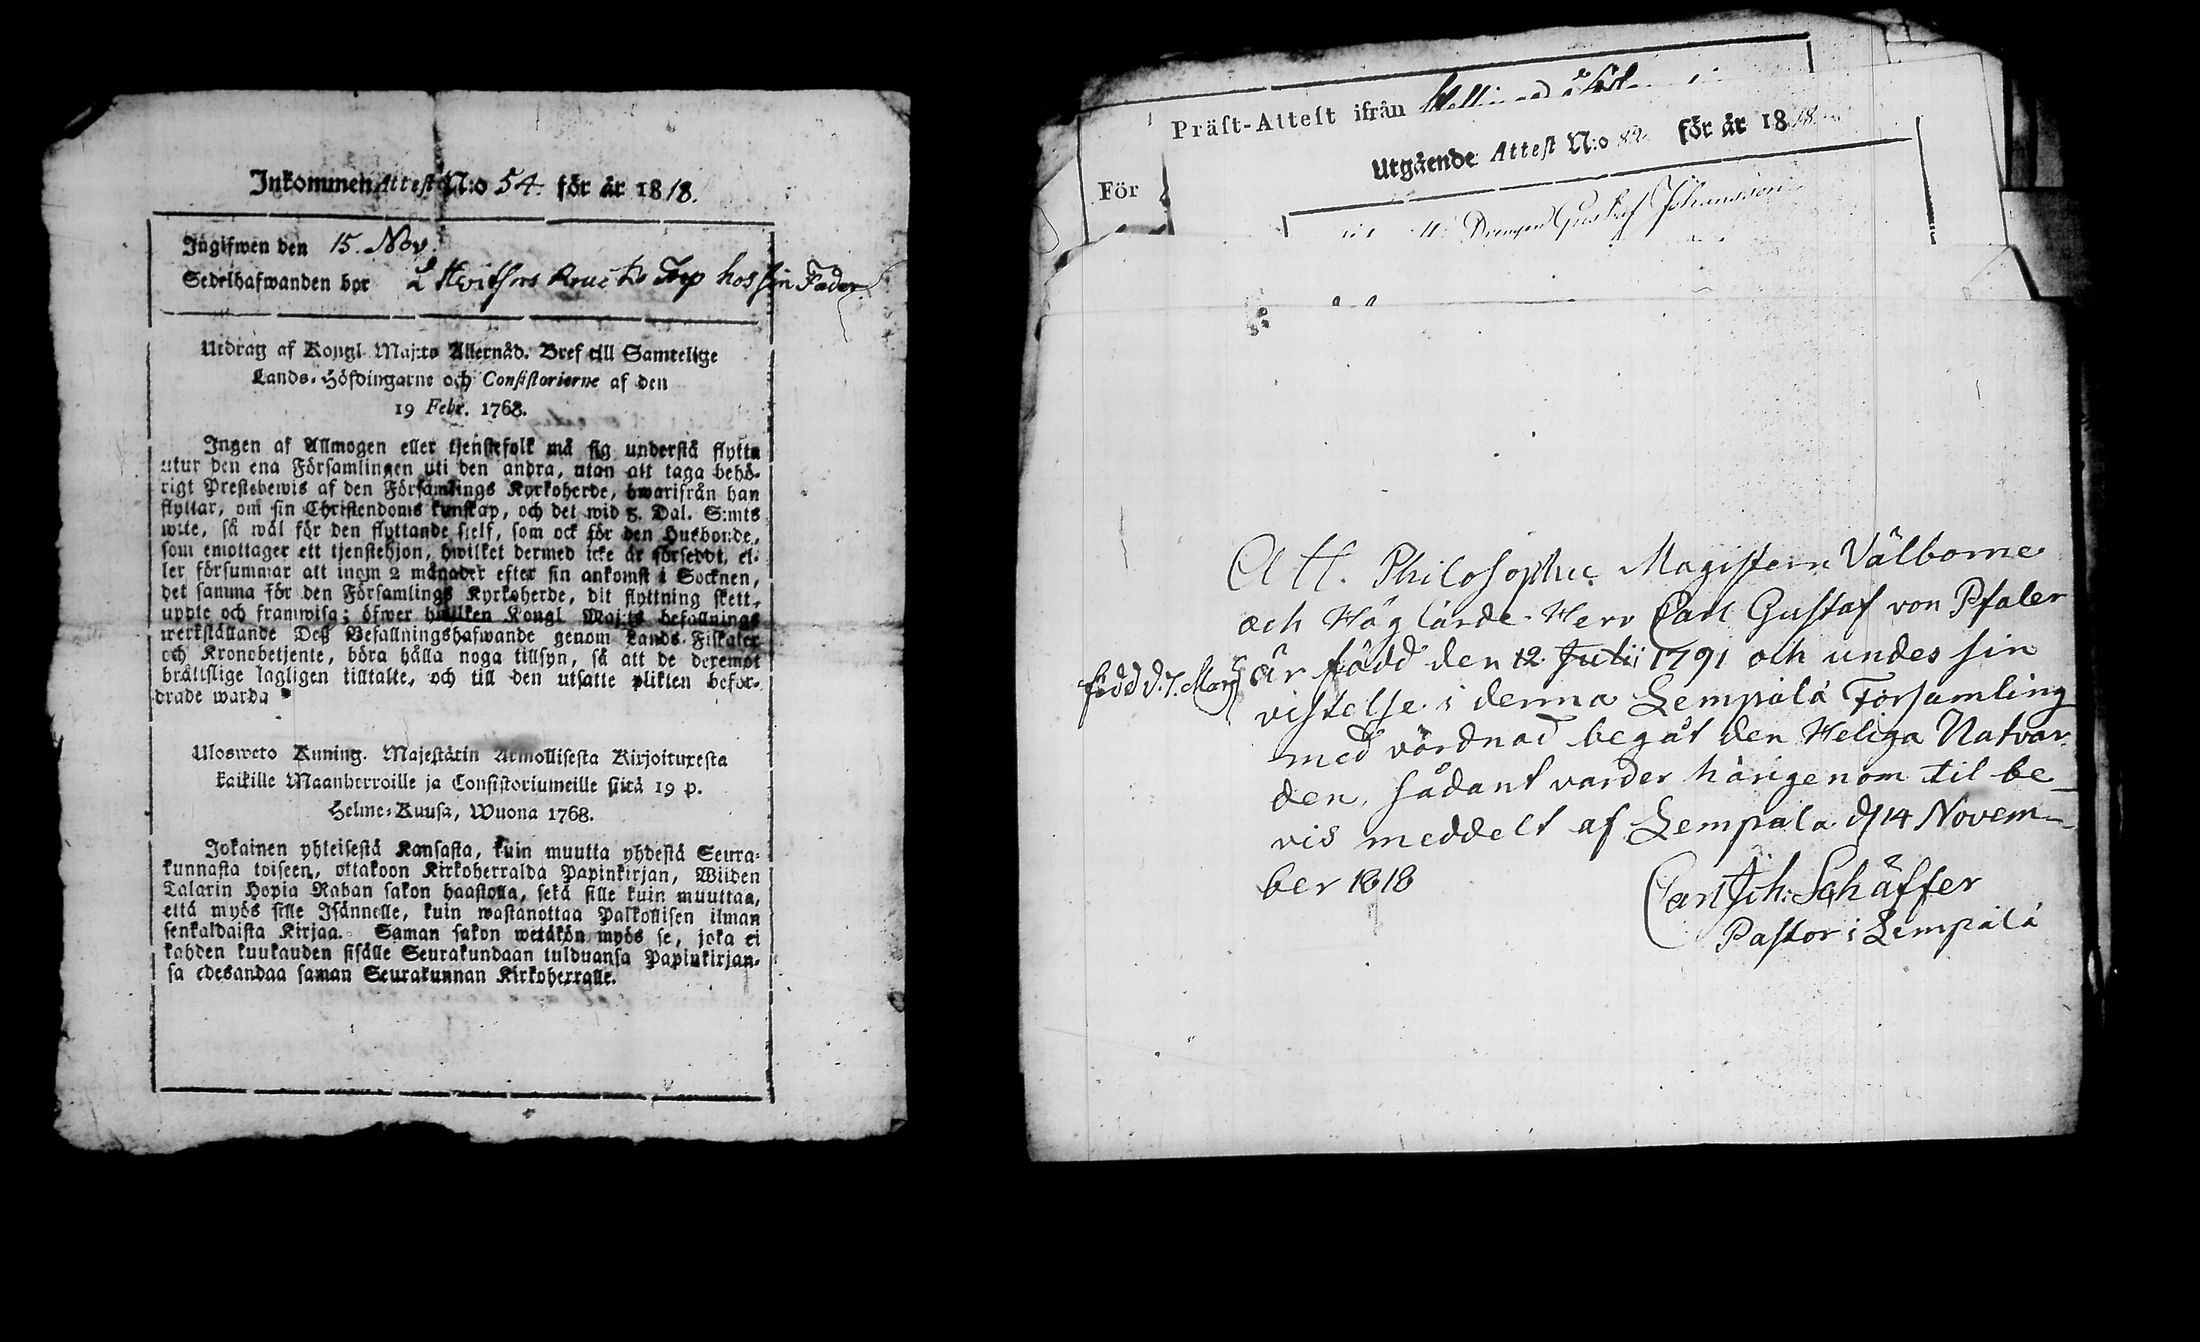 Inkommen Attest N:o 54. för år 1818.
Ingifwen den 15. Nov.
Sedelhafwanden bor hos sin Fader
Utdrag af Kongl. Maj:ts Allernåd. Bref till Samtelige
Lands-Höfdingarne och Consistorierne af den
19 Febr. 1768.
Ingen af Allmogen eller tjenstefolk må sig understå flytta
utur den ena Församlingen uti den andra, utan att taga behö-
rigt Prestebewis af den Församlings Kyrkoherde, hwarifrån han
flyttar, om sin Christendoms kunskap, och det wid 5. Dal. S:mts
wite, så wäl för den flyttande sielf, som ock för den Husbonde,
som emottager ett tjenstehjon, hwilket dermed icke är försedt, el-
ler försummar att inom 2 månader efter sin ankomst i Socknen,
det samma för den Församlings Kyrkoherde, dit flyttning skett,
uppte och framwisa; öfwer hwilken Kongl. Maj:ts befallnings
werkställande Deß Befallningshafwande genom Lands-Fiskaler
och Kronobetjente, böra hålla noga tillsyn, så att de deremot
brättslige lagligen tilltalte, och till den utsatte plikten befor-
drade warda
Ulosweto Kuning. Majestätin Armollisesta Kirjoituxesta
kaikille Maanherroille ja Consistoriumeille siitä 19 p.
Helme-Kuusa, Wuona 1768.
Jokainen yhteisestä Kansasta, kuin muutta yhdestä Seura-
kunnasta toiseen, ottakoon Kirkoherralda Papinkirjan, Wiiden
Talarin Hopia Rahan sakon haastolla, sekä sille kuin muuttaa,
että myös sille Isännelle, kuin wastanottaa Palkollisen ilman
senkaldaista Kirjaa. Saman sakon wetäkön myös se, joka ei
kahden kuukauden sisälle Seurakundaan tulduansa Papinkirjan-
sa edesandaa saman Seurakunnan Kirkoherralle.
Präst-Attest ifrån
Utgående Attest N:o 82 för år 1818
För
Drengen Gustaf Johansson
Att Philosophiæ Magistern Välborne
och Höglärde Herr Carl Gustaf von Pfaler
född d. 7. Marti är född den 12 Julii 1791 och undes sin
vistelse i denna Lempälä Församling
med vördnad begåt den Heliga Natvar-
den, sådant varder härigenom til be-
vis meddelt af Lempälä d 14 Novem-
ber 1818
Carl Joh: Schäffer
Pastor i Lempälä